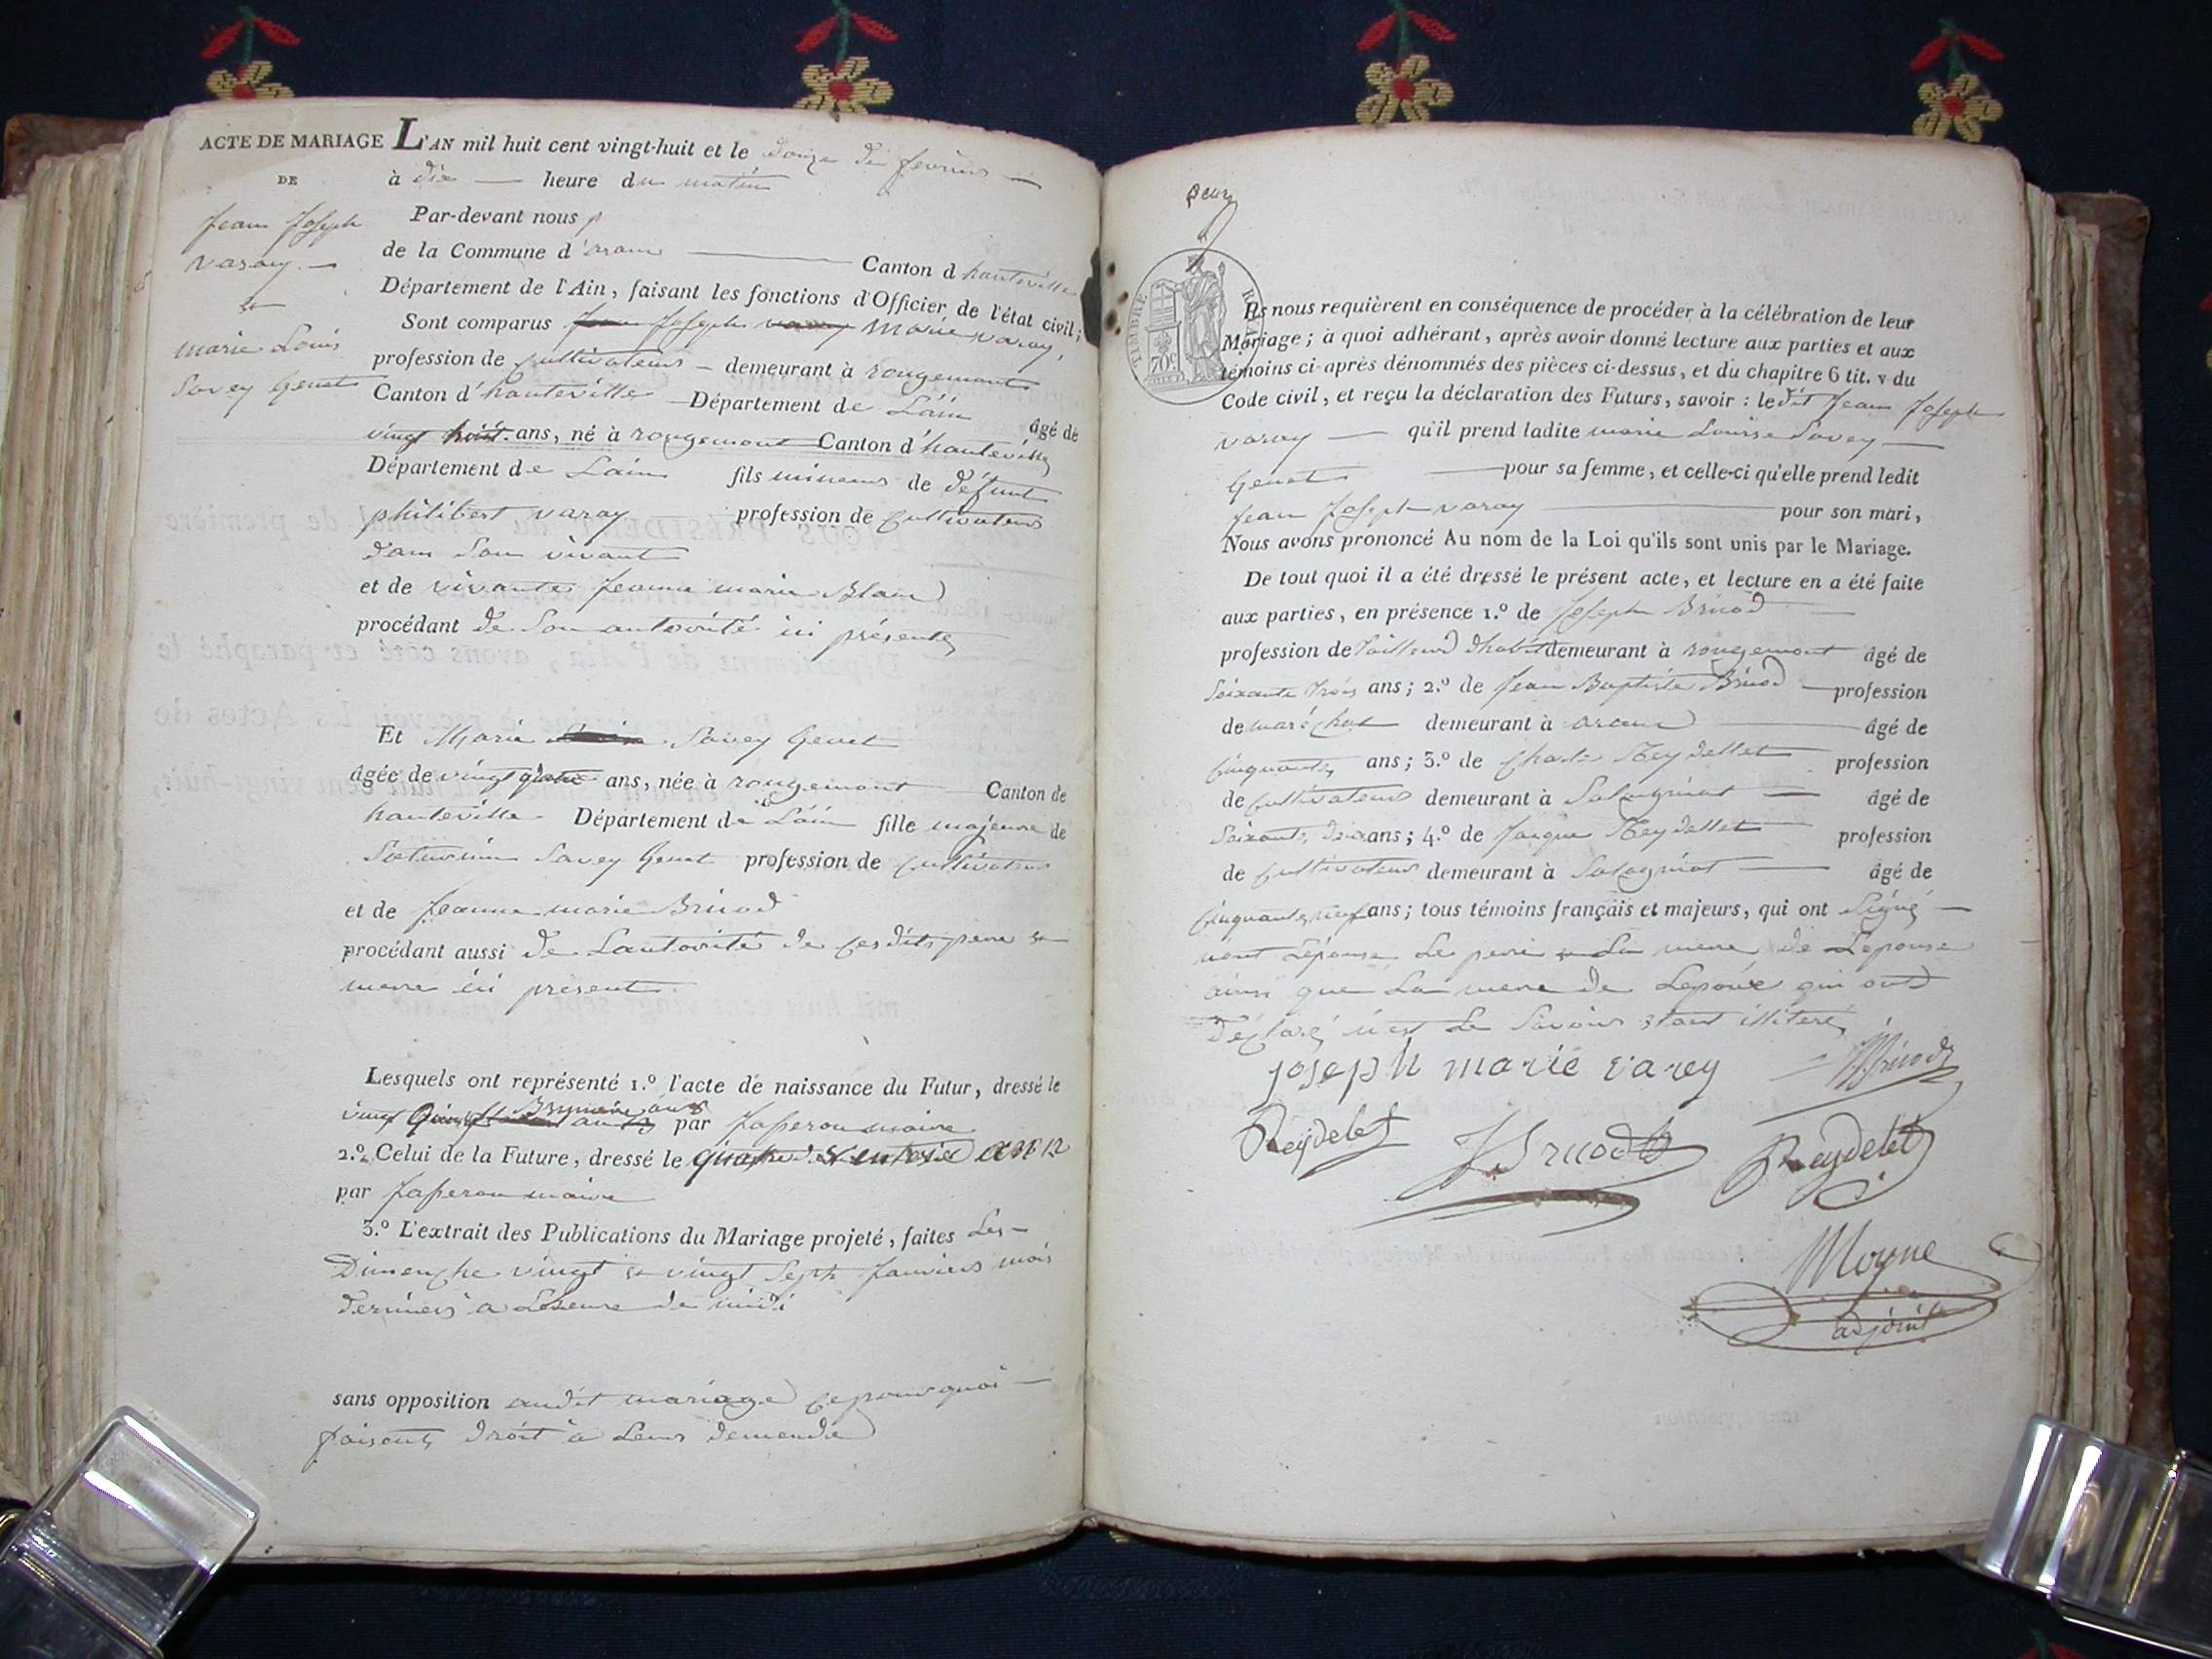 ACTE DE MARIAGE L'AN mil huit cent vingt-huit et le douze de fevrier
DE
à dix heure du matin
Jean Joseph
varay
et
marie Louis
Savey Genet
Par-devant nous
de la Commune d'aranc Canton d hauteville
Département de l'Ain, faisant les fonctions d'Officier de l'état civil;
Sont comparus Jean Joseph varay Marie varay,
profession de Cultivateur demeurant à rougemont
Canton d'hauteville Département de Lain âgé de
vingt huit ans, né à rougemont Canton d'hauteville
Département de Lain fils mineur de défunt
philibert varay profession de Cultivateur
dans Son vivant
et de vivante jeanne marie Blain
procédant de Son autorité ici présente
Et Marie Savey Genet
âgée de vingt quatre ans, née à rougemont Canton de
hauteville Département de Lain fille majeure de
Saturnin Savey Genet profession de Cultivateur
et de jeanne marie Brucod
procédant aussi de Lautorité de Cesdits pere et
mere ici présent
Lesquels ont représenté 1.º l'acte de naissance du Futur, dressé le
vingt Brumaire an 8 par maire
2.º Celui de la Future, dressé le quatre ventose an 12
par maire
3.º L'extrait des Publications du Mariage projeté, faites Les
Dimenche vingt et vingt Sept janvier mois
dernier a Lheure de midi
sans opposition audit mariage Cepourquoi
faisant droit a Leur demende
TIMBRE ROYAL
70c
Ils nous requièrent en conséquence de procéder à la célébration de leur
Mariage; à quoi adhérant, après avoir donné lecture aux parties et aux
témoins ci-après dénommés des pièces ci-dessus, et du chapitre 6 tit. v du
Code civil, et reçu la déclaration des Futurs, savoir : ledit Jean Joseph
varay qu'il prend ladite marie Louise Savey
Genet pour sa femme, et celle-ci qu'elle prend ledit
Jean Joseph varay pour son mari,
Nous avons prononcé Au nom de la Loi qu'ils sont unis par le Mariage.
De tout quoi il a été dressé le présent acte, et lecture en a été faite
aux parties, en présence 1.º de Joseph Brucod
profession de Tailleur dhabit demeurant à rougemont âgé de
Soixante trois ans; 2.º de Jean Baptiste Brucod profession
de maréchal demeurant à aranc âgé de
Cinquante ans; 3.º de Charle Reydellet profession
de Cultivateur demeurant à Salagniat âgé de
Soixante deux ans; 4.º de Jaque Reydellet profession
de Cultivateur demeurant à Salagniat âgé de
Cinquante neuf ans; tous témoins français et majeurs, qui ont Signé
nont Lépouse Le pere et La mere de Lepouse
ainsi que La mere de Lepoux qui ont
déclaré Le Savoir etant illiteré
joseph marie varey Brucod
Reydelet JBrucod Reydelet
Moyne
adjoint